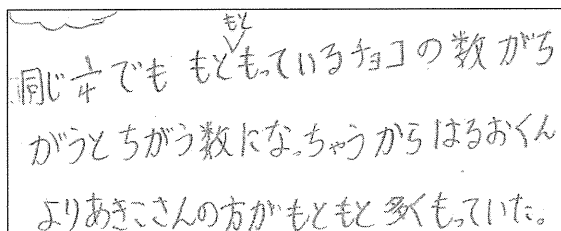 同じ1/4でももともともっているチョコの数がち
がうとちがう数になっちゃうからはるおくん
よりあきこさんの方がもともと多くもっていた。